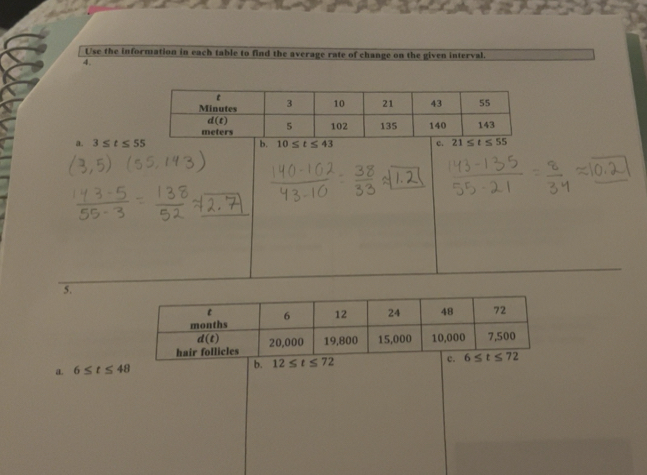 Use the information in each table to find the average rate of change on the given interval.
4.
t Minutes 3 10 21 43 55
d(t) meters 5 102 135 140 143
a. 3 ≤ t ≤ 55
(3,5) (55,143)
143-5 / 55-3 = 138 / 52 ≈ 2.7
b. 10 ≤ t ≤ 43
140-102 / 43-10 = 38 / 33 ≈ 1.2
c. 21 ≤ t ≤ 55
143-135 / 55-21 = 8 / 34 ≈ 0.2
5.
t months 6 12 24 48 72
d(t) hair follicles 20,000 19,800 15,000 10,000 7,500
a. 6 ≤ t ≤ 48
b. 12 ≤ t ≤ 72
c. 6 ≤ t ≤ 72